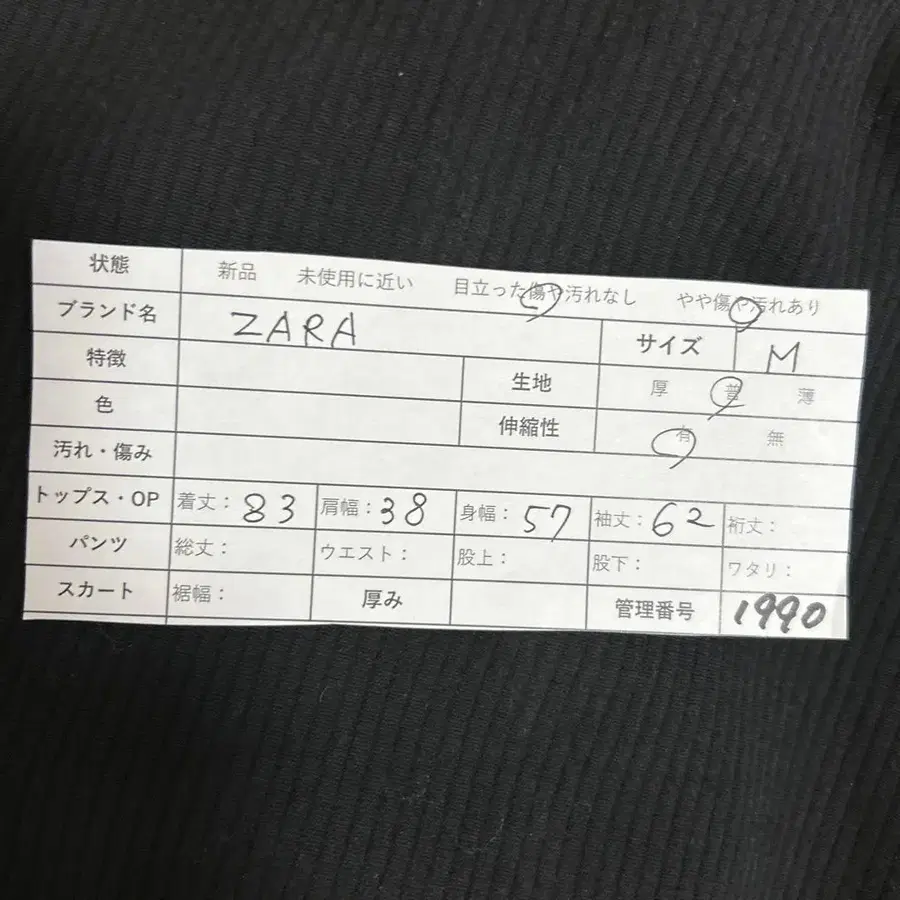 状態 新品 未使用に近い 目立った傷や汚れなし やや傷や汚れあり
ブランド名 ZARA サイズ M
特徴 生地 厚 普 薄
色 伸縮性 有 無
汚れ・傷み
トップス・OP 着丈: 83 肩幅: 38 身幅: 57 袖丈: 62 裄丈:
パンツ 総丈: ウエスト: 股上: 股下: ワタリ:
スカート 裾幅: 厚み 管理番号 1990